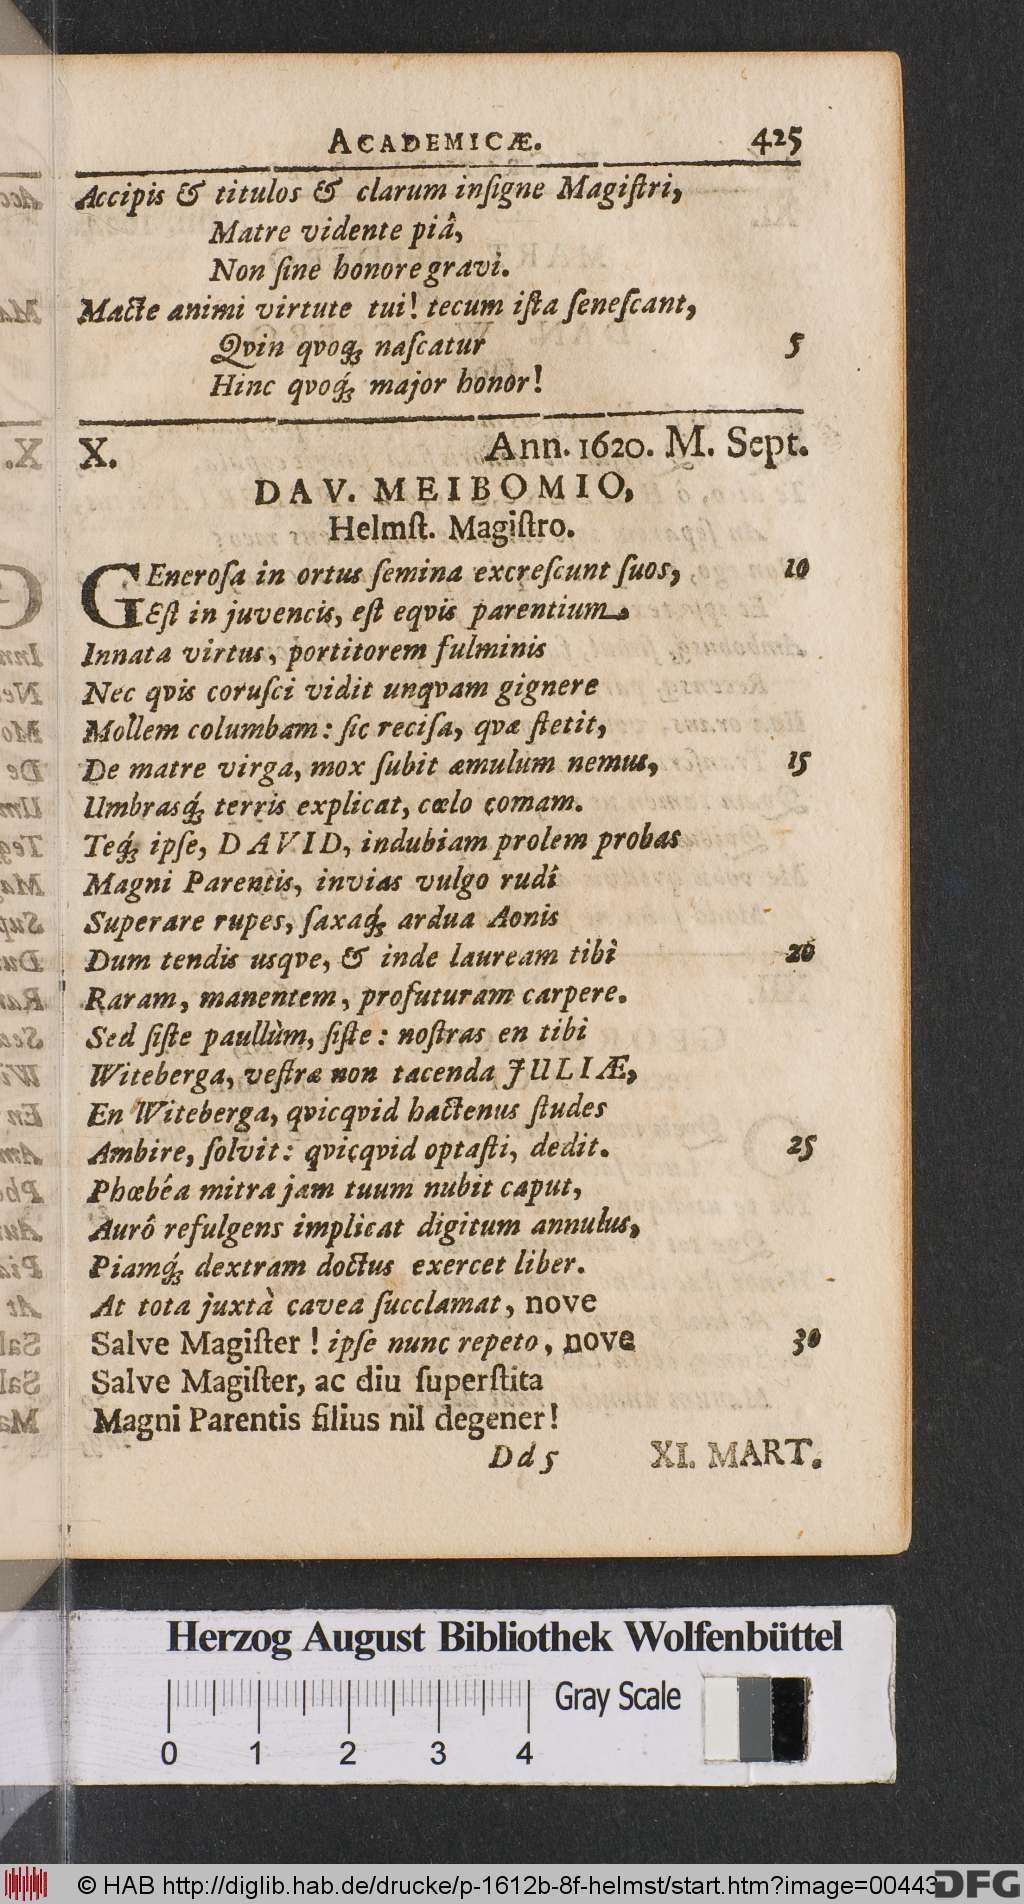 ACADEMICÆ. 425
Accipis & titulos & clarum inſigne Magiſtri,
Matre vidente piâ,
Non ſine honore gravi.
Macte animi virtute tui! tecum iſta ſeneſcant,
Qvin qvoq́; naſcatur 5
Hinc qvoq́; major honor!
X. Ann. 1620. M. Sept.
DAV. MEIBOMIO,
Helmſt. Magiſtro.
GEneroſa in ortus ſemina excreſcunt ſuos, 10
Eſt in juvencis, eſt eqvis parentium
Innata virtus, portitorem fulminis
Nec qvis coruſci vidit unqvam gignere
Mollem columbam: ſic reciſa, qvæ ſtetit,
De matre virga, mox ſubit æmulum nemus, 15
Umbrasq́; terris explicat, cœlo comam.
Teq́; ipſe, DAVID, indubiam prolem probas
Magni Parentis, invias vulgo rudi
Superare rupes, ſaxaq́; ardua Aonis
Dum tendis usqve, & inde lauream tibi 20
Raram, manentem, profuturam carpere.
Sed ſiſte paullùm, ſiſte: noſtras en tibi
Witeberga, veſtræ non tacenda JULIÆ,
En Witeberga, qvicqvid hactenus ſtudes
Ambire, ſolvit: qvicqvid optaſti, dedit. 25
Phœbéa mitra jam tuum nubit caput,
Aurô refulgens implicat digitum annulus,
Piamq́; dextram doctus exercet liber.
At tota juxtà cavea ſucclamat, nove
Salve Magiſter! ipſe nunc repeto, nove 30
Salve Magiſter, ac diu ſuperſtita
Magni Parentis filius nil degener!
Dd 5 XI. MART.
Herzog August Bibliothek Wolfenbüttel
Gray Scale
0 1 2 3 4
© HAB http://diglib.hab.de/drucke/p-1612b-8f-helmst/start.htm?image=00443
DFG